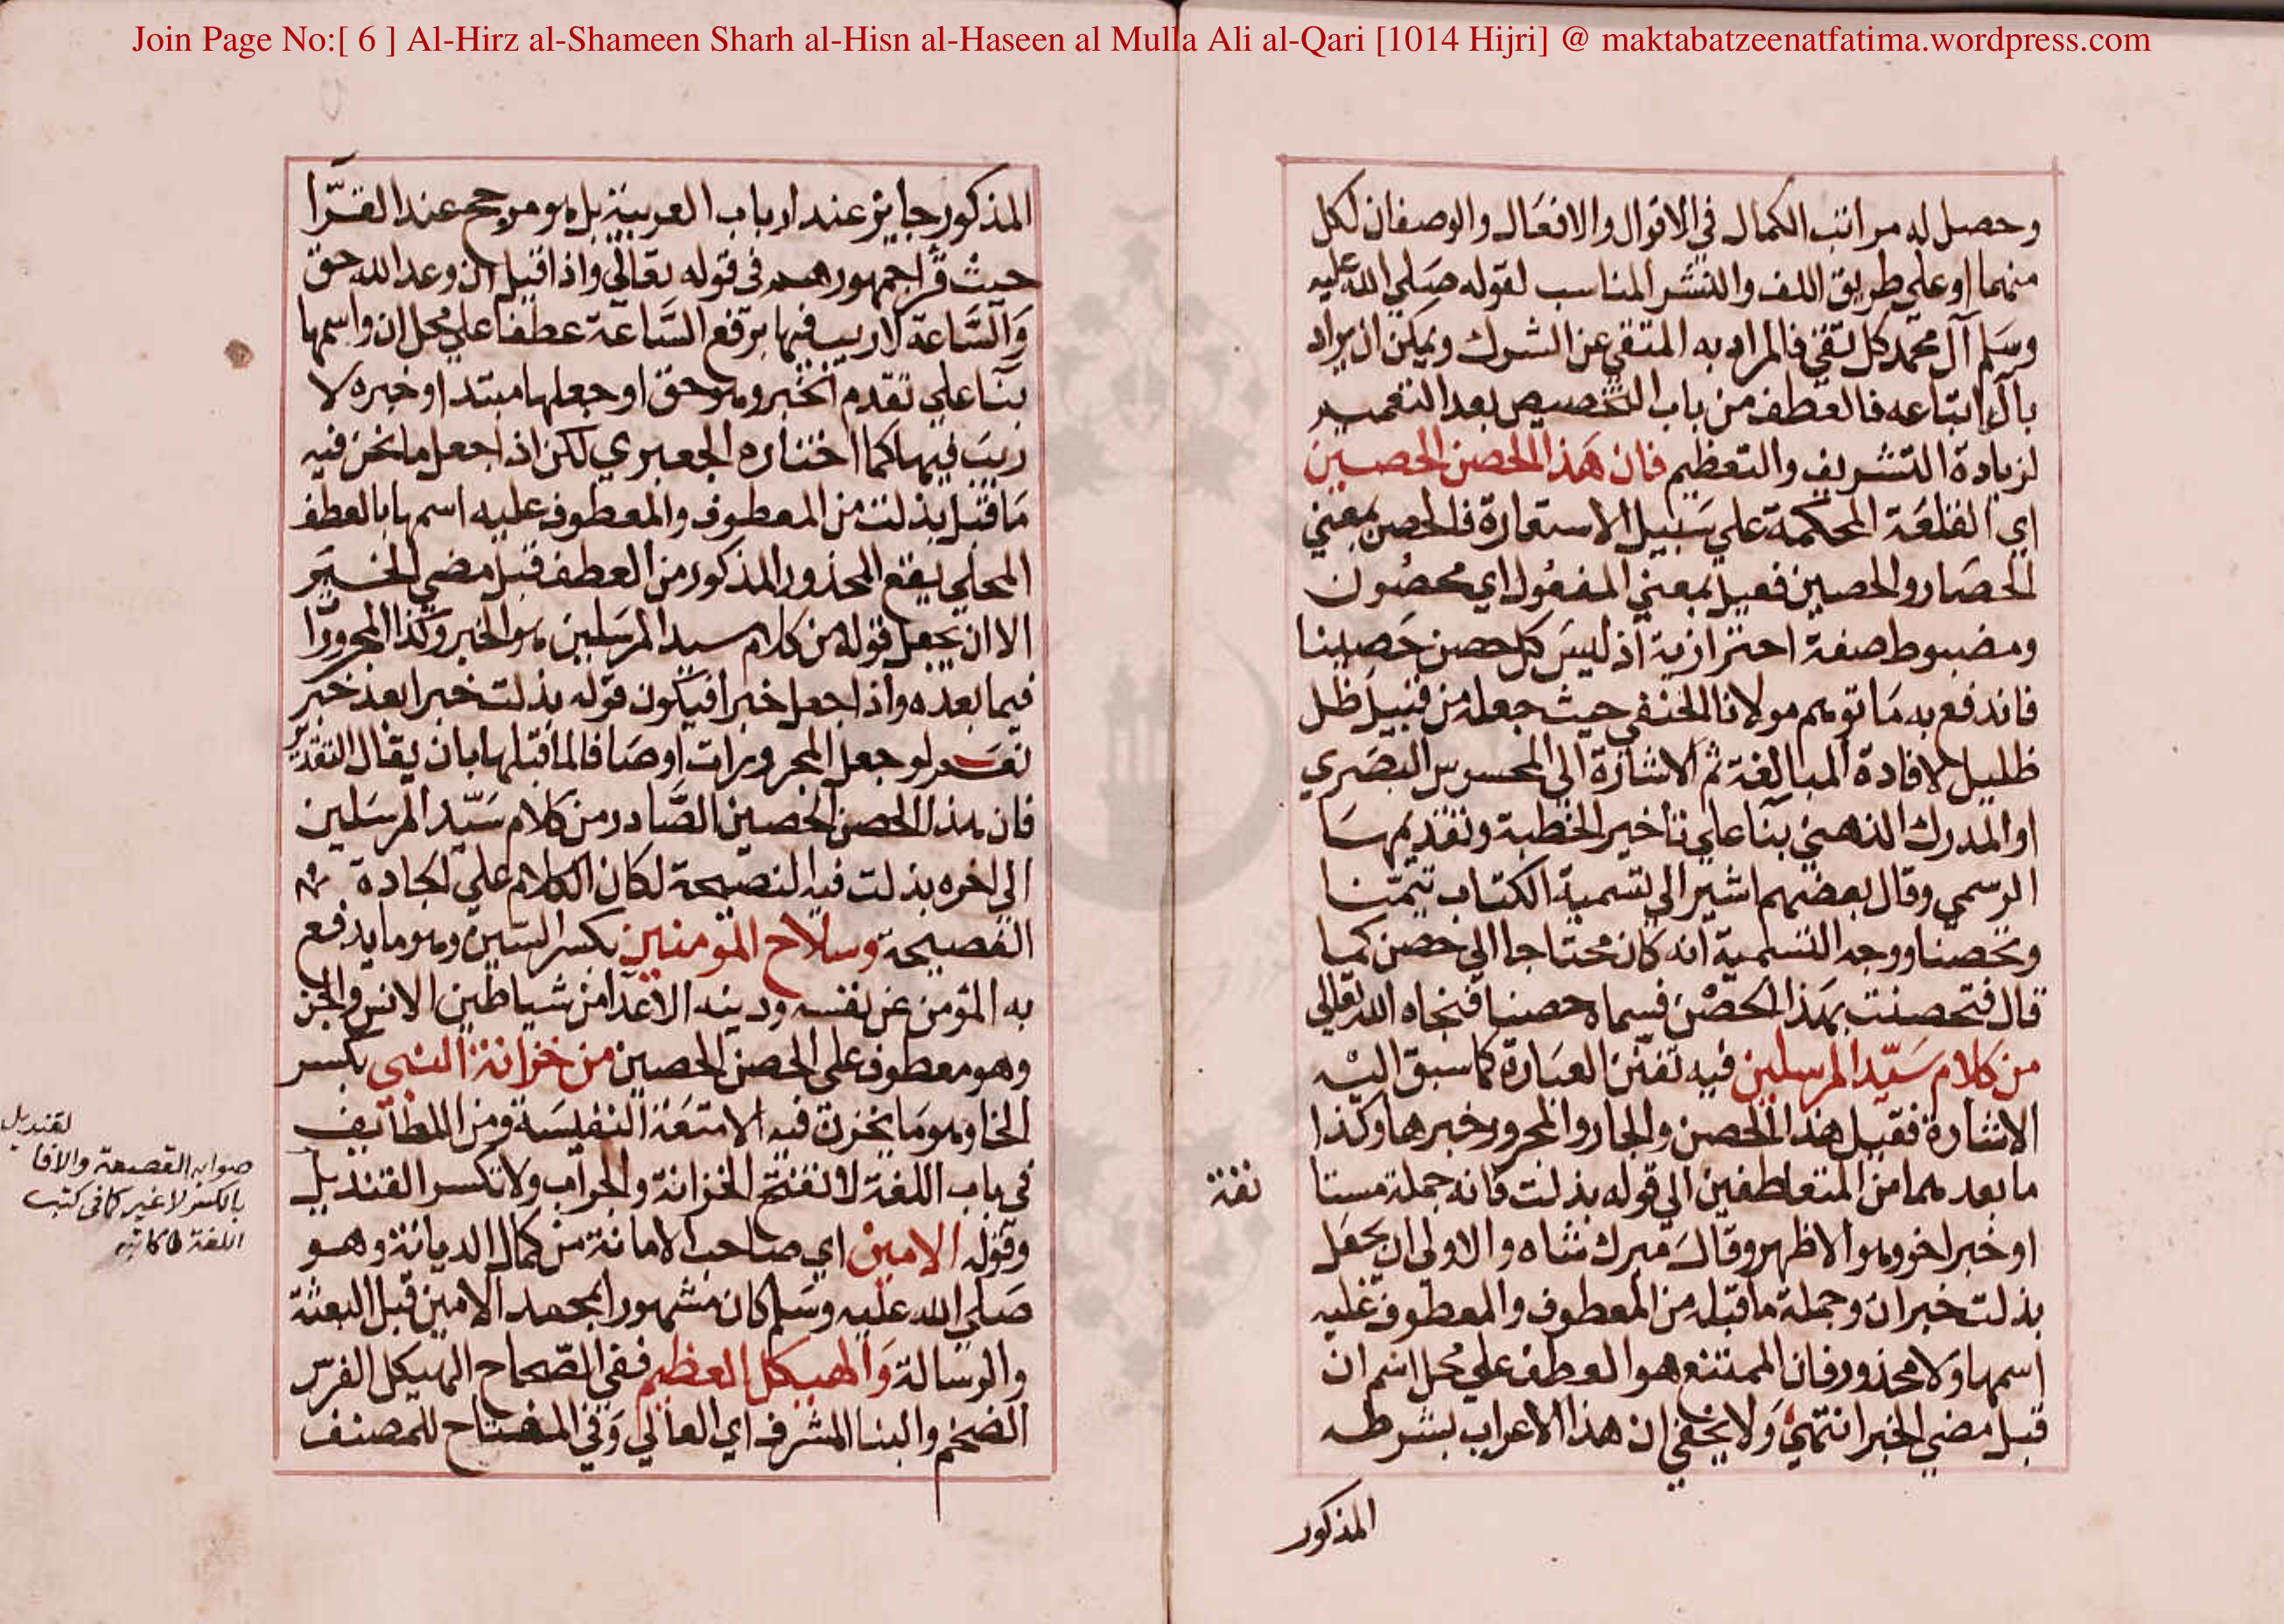 Join Page No:[ 6 ] Al-Hirz al-Shameen Sharh al-Hisn al-Haseen al Mulla Ali al-Qari [1014 Hijri] @ maktabatzeenatfatima.wordpress.com
وحصل له مراتب الكمال في الاقوال والافعال والوصفان لكل
منهما او على طريق اللف والنشر المناسب لقوله صلي الله عليه
وسلم آل محمد كل تقي فالمراد به المتقي عن الشرك ويمكن ان يراد
بآله اتباعه فالعطف من باب التخصيص بعد التعميم
لزيادة التشريف والتعظيم فان هذا الحصن الحصين
اي القلعة المحكمة علي سبيل الاستعارة فالحصن بمعني
الحصار والحصين فعيل بمعني المفعول اي محصون
ومضبوط صفة احترازية اذ ليس كل حصن حصينا
فاندفع به ما توهم مولانا الحنفي حيث جعله من قبيل ظل
ظليل لافادة المبالغة ثم الاشارة الى المحسوس البصري
او المدرك الذهني بنا علي تاخير الخطبة وتقديمها
الرسمي وقال بعضهم اشير الي تسمية الكتاب تيمنا
وتحصنا ووجه التسمية انه كان محتاجا الي حصن كما
قال فتحصنت بهذا الحصن فسماه حصنا فنجاه الله تعالي
من كلام سيد المرسلين فيه تفنن العبارة كما سبق اليه
الاشارة فقيل هذا الحصن والجار والمجرور خبرها وكذا
ما بعدهما من المتعاطفين الي قوله بذلت فانه جملة مستا
نفة
او خبر اخر وهو الاظهر وقال ميرك شاه والاولى ان يجعل
بذلت خبر ان وجملة ما قبله من المعطوف والمعطوف عليه
اسمها ولا محذور فان الممتنع هو العطف علي محل اسم ان
قبل مضي الخبر انتهي ولا يخفي ان هذا الاعراب بشرطه
المذكور
المذكور جايز عند ارباب العربية بل هو مرجح عند القرّا
حيث قرا جمهورهم في قوله تعالي واذا قيل ان وعد الله حق
والساعة لا ريب فيها برفع السّاعة عطفا علي محل ان واسمها
بنا علي تقدم الخبر وهو حق او جعلها مبتدا وخبره لا
ريب فيها كما اختاره الجعبري لكن اذا جعل ما نحن فيه
ما قبل بذلت من المعطوف والمعطوف عليه اسمها بالعطف
المحلي يقع المحذور المذكور من العطف قبل مضي الخبر
الا ان يجعل قوله من كلام سيد المرسلين هو الخبر وكذا المجرور
فيما بعده واذا جعل خبرا فيكون قوله بذلت خبرا بعد خبر
نعم لو جعل المجرورات اوصافا لما قبلها بان يقال التقدير
فان هذا الحصن الحصين الصّادر من كلام سيّد المرسلين
الي اخره بذلت فيه النصيحة لكان الكلام علي الجادة
الفصيحة وسلاح المؤمنين بكسر السين وهو ما يدفع
به المؤمن عن نفسه ودينه الاعدا من شياطين الانس والجن
وهو معطوف على الحصن الحصين من خزانة النبي بكسر
الخا وهو ما يخزن فيه الامتعة النفيسة ومن اللطائف
في باب اللغة لا تفتح الخزانة والجراب ولا تكسر القنديل
وقوله الامين اي صاحب الامانة من كمال الديانة وهو
صلي الله عليه وسلم كان مشهورا بمحمد الامين قبل البعثة
والرسالة والهيكل العظيم ففي الصّحاح الهيكل الفرس
الضخم والبنا المشرف اي العالي وفي المفتاح للمصنف
لقنديل
صوابه القصعة والافا
بالكسر لا غير كما في كتب
اللغة